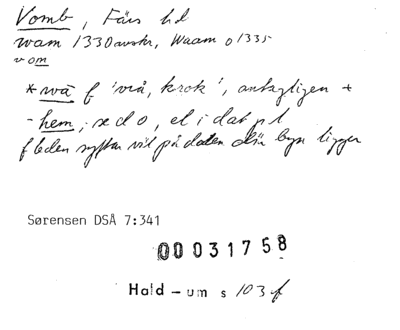 Vomb, Färs hd
wam 1330 avskr, Waam o 1335
vom
*wā f 'vrå, krok', antagligen +
-hem; se d o, el i dat pl
f leden syftar väl på dalen där byn ligger
Sørensen DSÅ 7:341
00031758
Hald - um s 103 f